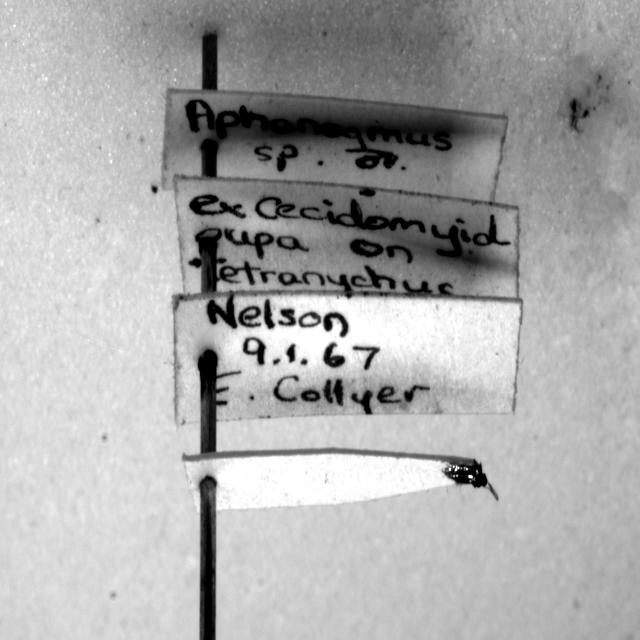 Aphanogmus
sp. or.
ex Cecidomyid
pupa on
Tetranychus
Nelson
9.1.67
E. Collyer